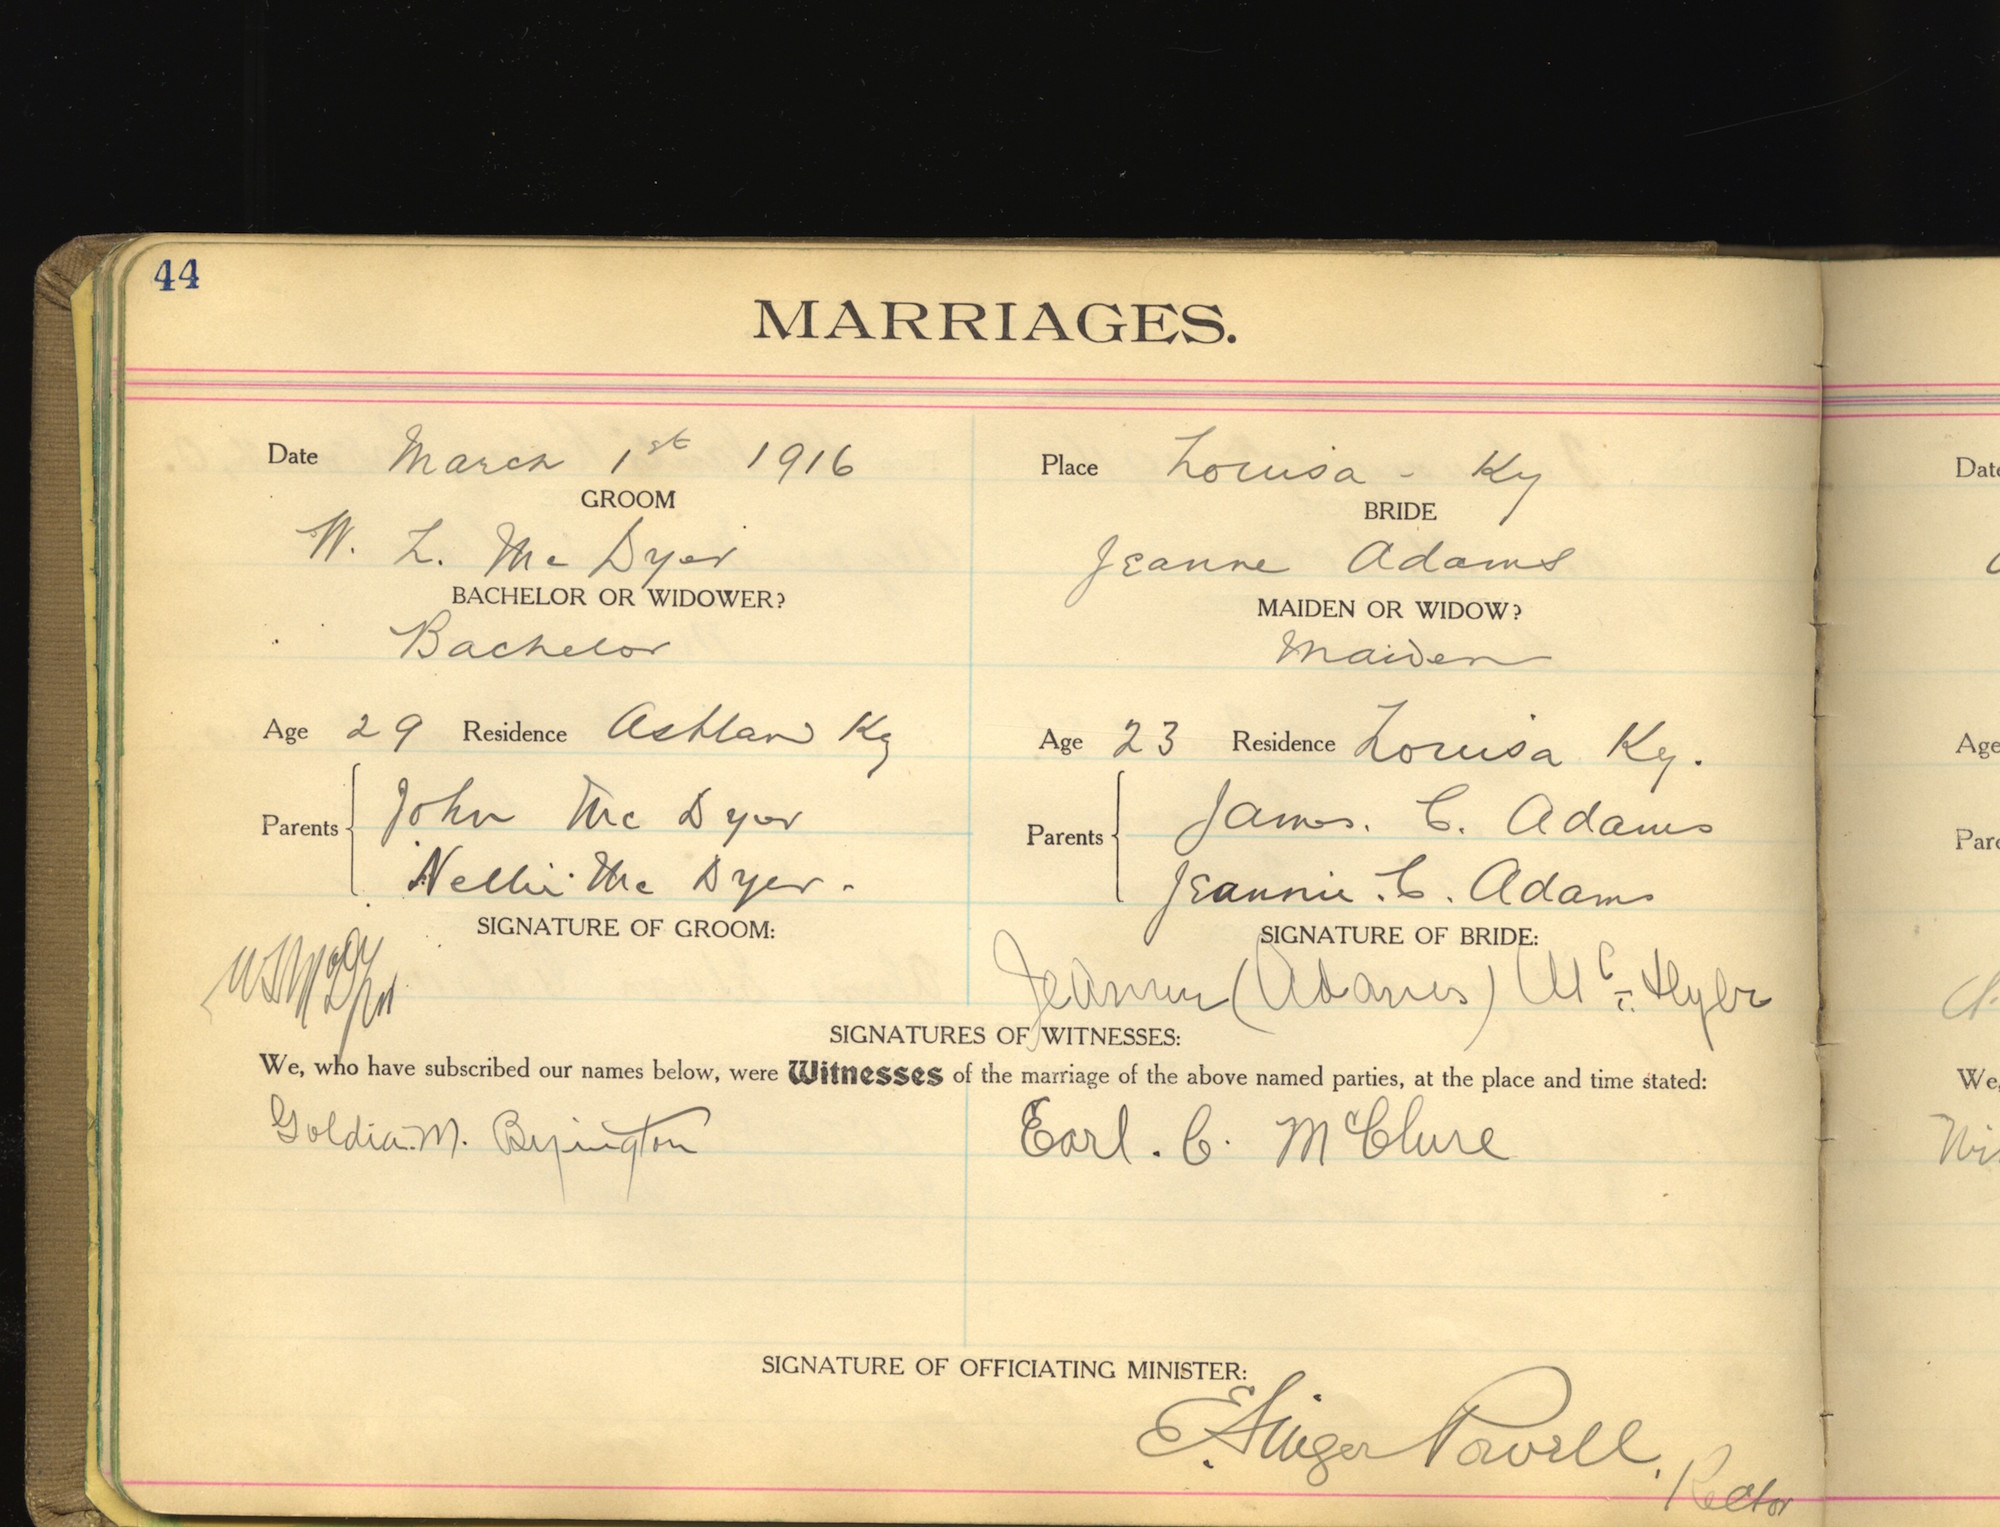 44
MARRIAGES.
Date March 1st 1916
Place Louisa - Ky
GROOM
W. L. Mc Dyer
BRIDE
Jeanne Adams
BACHELOR OR WIDOWER?
Bachelor
MAIDEN OR WIDOW?
Maiden
Age 29 Residence Ashland Ky
Age 23 Residence Louisa Ky.
Parents John Mc Dyer
Nellie Mc Dyer.
Parents James. C. Adams
Jeannie. C. Adams
SIGNATURE OF GROOM:
SIGNATURE OF BRIDE:
(Adams)
SIGNATURES OF WITNESSES:
We, who have subscribed our names below, were Witnesses of the marriage of the above named parties, at the place and time stated:
Goldia. M. Byington
Earl. C. McClure
SIGNATURE OF OFFICIATING MINISTER:
E. Singer Powell.
Rector
Date
Age
We,